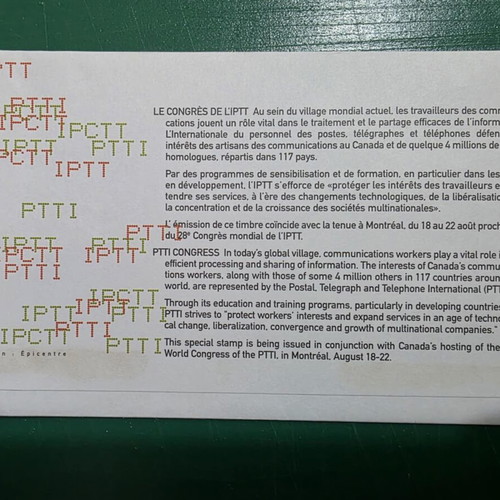 PTT
PTTI
PCTT
IPCTT
IPCTT
IPTT
PTTI
PCTT
IPTT
PTTI
PTTI
IPTT
PTTI
IPCTT
IPTT
PTTI
IPCTT
IPTT
IPTT
PTTI
IPCTT
PTTI
PTTI
n . Épicentre
LE CONGRÈS DE L'IPTT Au sein du village mondial actuel, les travailleurs des com
cations jouent un rôle vital dans le traitement et le partage efficaces de l'inform
L'Internationale du personnel des postes, télégraphes et téléphones défen
intérêts des artisans des communications au Canada et de quelque 4 millions de
homologues, répartis dans 117 pays.
Par des programmes de sensibilisation et de formation, en particulier dans les
en développement, l'IPTT s'efforce de «protéger les intérêts des travailleurs e
tendre ses services, à l'ère des changements technologiques, de la libéralisat
la concentration et de la croissance des sociétés multinationales».
L'émission de ce timbre coïncide avec la tenue à Montréal, du 18 au 22 août proch
du 28e Congrès mondial de l'IPTT.
PTTI CONGRESS In today's global village, communications workers play a vital role i
efficient processing and sharing of information. The interests of Canada's commu
tions workers, along with those of some 4 million others in 117 countries aroun
world, are represented by the Postal, Telegraph and Telephone International (PTT
Through its education and training programs, particularly in developing countries
PTTI strives to "protect workers' interests and expand services in an age of techno
cal change, liberalization, convergence and growth of multinational companies."
This special stamp is being issued in conjunction with Canada's hosting of the
World Congress of the PTTI, in Montréal, August 18-22.